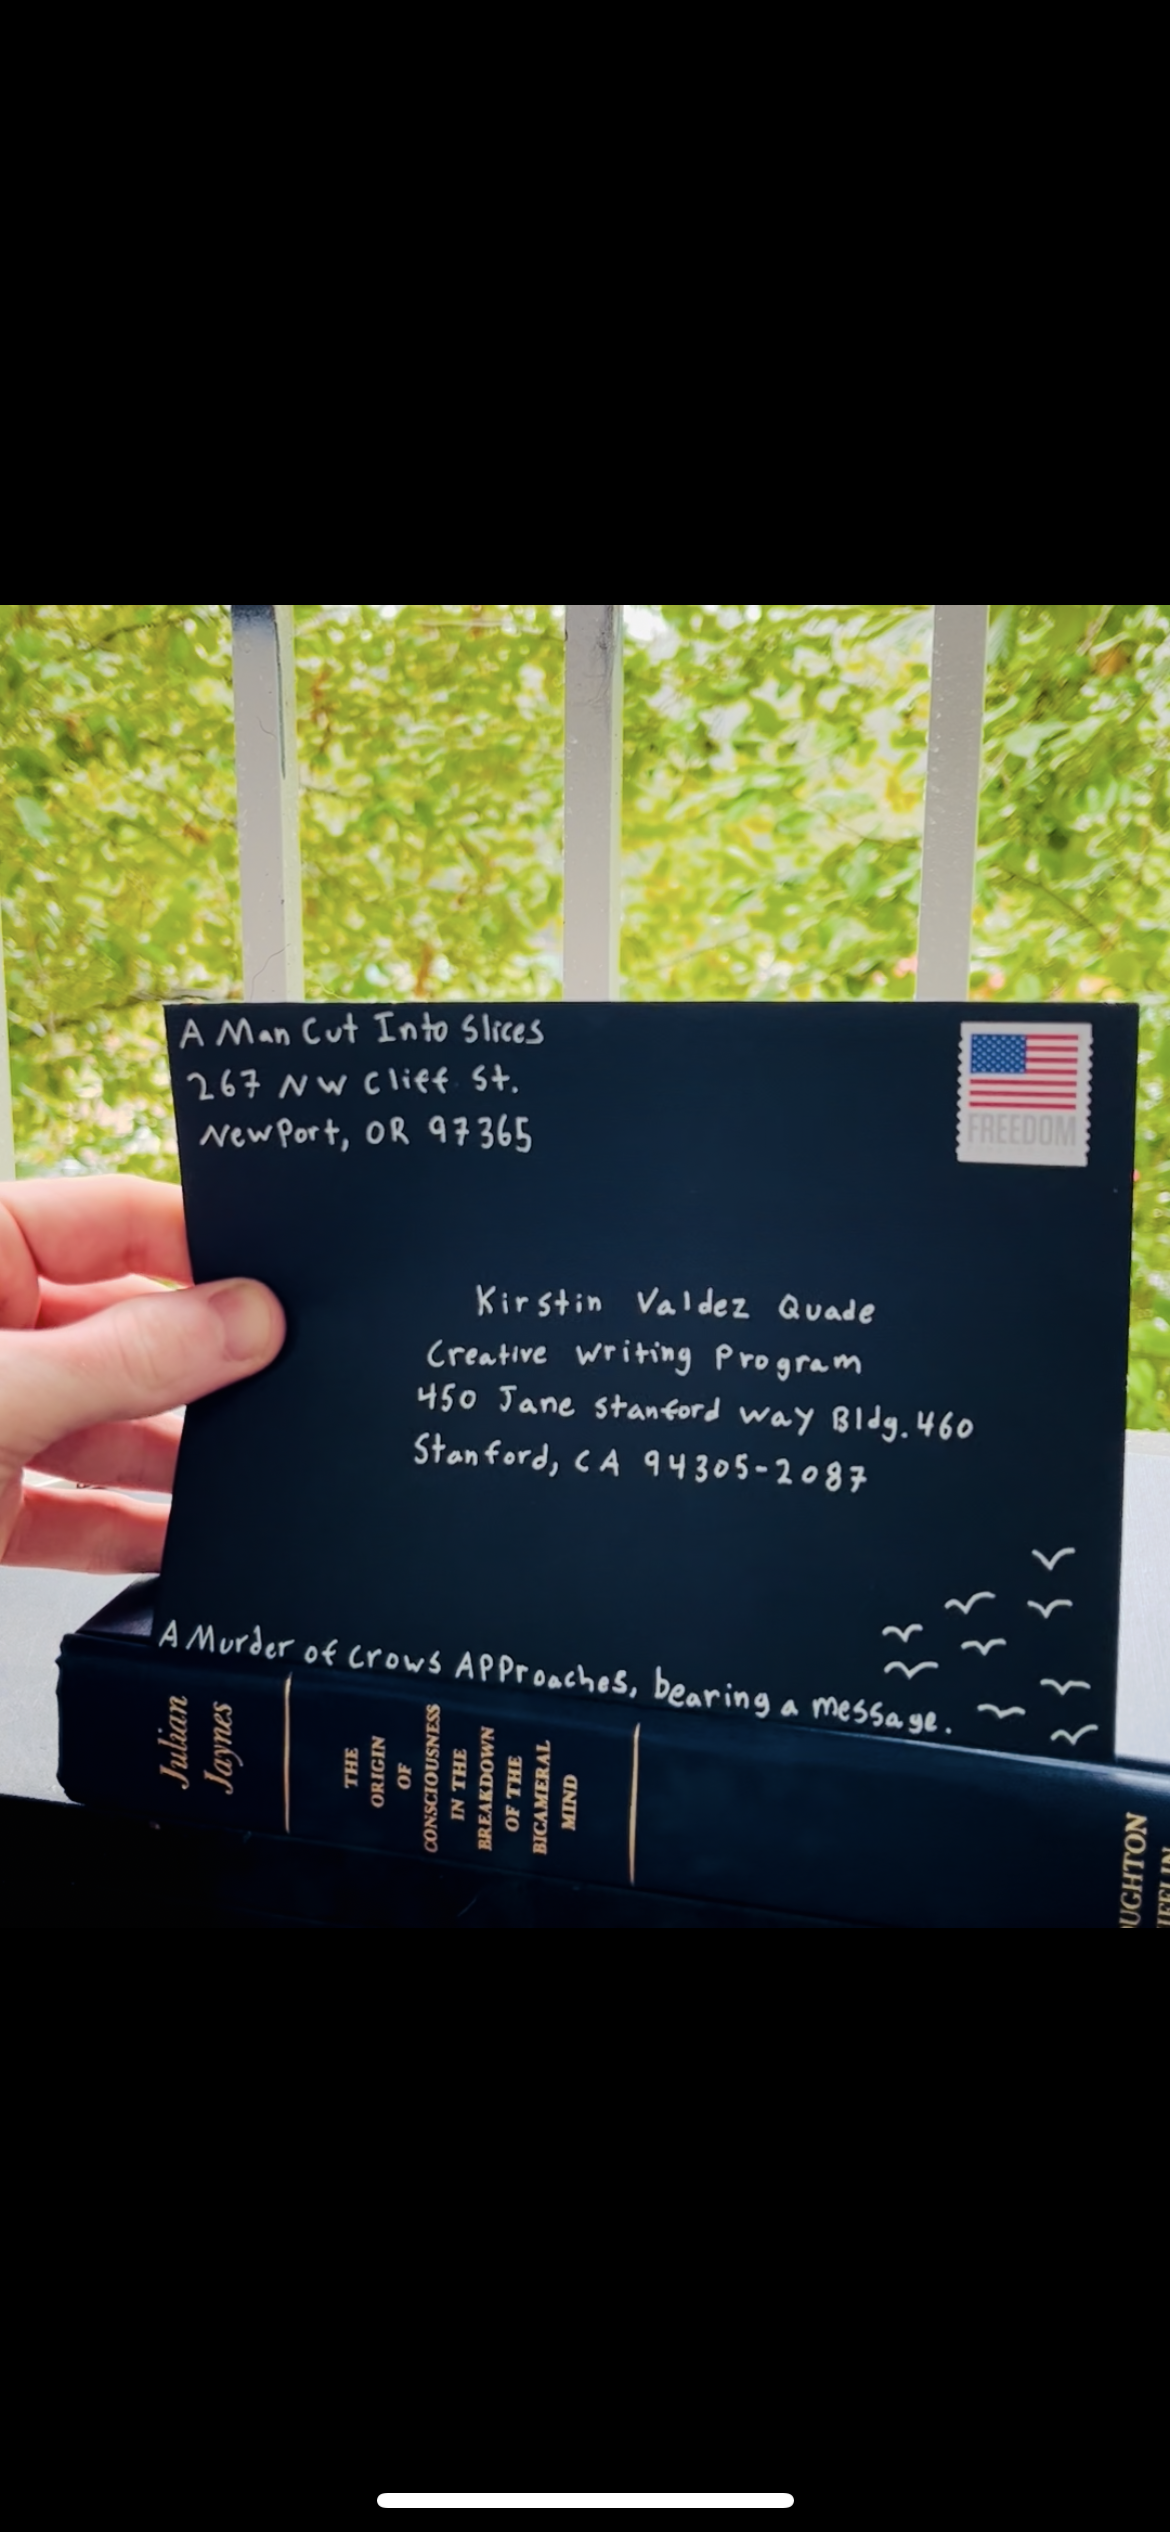 A Man Cut Into Slices
267 NW Cliff St.
NewPort, OR 97365
FREEDOM
Kirstin Valdez Quade
Creative Writing Program
450 Jane Stanford Way Bldg. 460
Stanford, CA 94305-2087
A Murder of Crows APProaches, bearing a message.
Julian
Jaynes
THE
ORIGIN
OF
CONSCIOUSNESS
IN THE
BREAKDOWN
OF THE
BICAMERAL
MIND
UGHTON